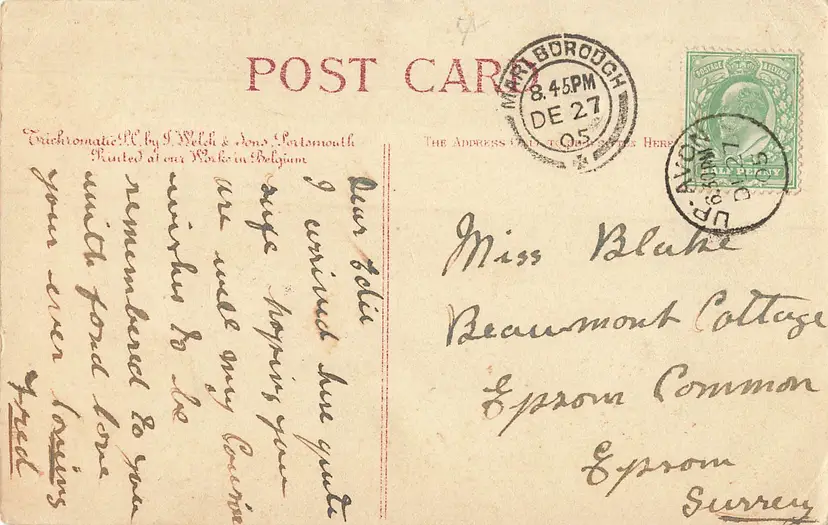 POST CARD
Trichromatic P.C. by J. Welch & Sons, Portsmouth
Printed at our Works in Belgium
THE ADDRESS ONLY TO BE WRITTEN HERE
MARLBOROUGH
8.45PM
DE 27
05
POSTAGE & REVENUE
HALF PENNY
UP-AVON
DE 27
05
Dear Edie
I arrived here quite
safe hoping you
are well my Cousin
wishes to be
remembered to you
with fond love
your ever loving
Fred
Miss Blake
Beaumont Cottage
Epsom Common
Epsom
Surrey